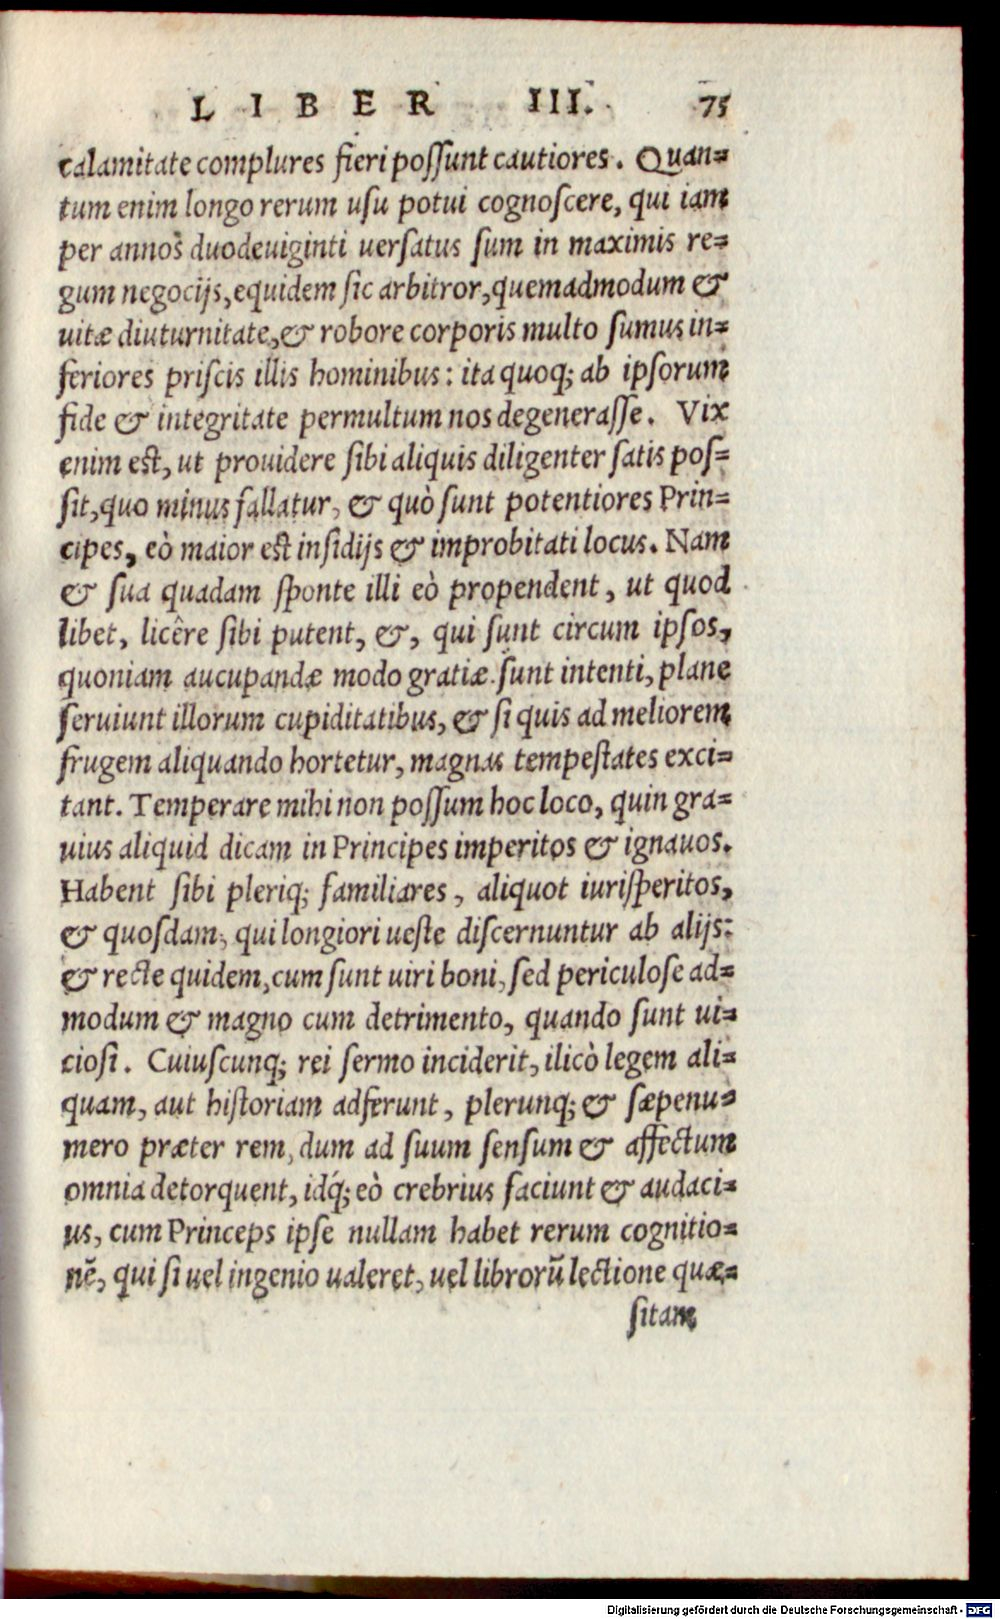 LIBER III. 75
calamitate complures fieri poſſunt cautiores. Quan=
tum enim longo rerum uſu potui cognoſcere, qui iam
per annos duodeuiginti uerſatus ſum in maximis re=
gum negocijs, equidem ſic arbitror, quemadmodum &
uitæ diuturnitate, & robore corporis multo ſumus in=
feriores priſcis illis hominibus: ita quoq; ab ipſorum
fide & integritate permultum nos degeneraſſe. Vix
enim eſt, ut prouidere ſibi aliquis diligenter ſatis poſ=
ſit, quo minus fallatur, & quò ſunt potentiores Prin=
cipes, eò maior eſt inſidijs & improbitati locus. Nam
& ſua quadam ſponte illi eò propendent, ut quod
libet, licêre ſibi putent, &, qui ſunt circum ipſos,
quoniam aucupandæ modo gratiæ ſunt intenti, plane
ſeruiunt illorum cupiditatibus, & ſi quis ad meliorem
frugem aliquando hortetur, magnas tempeſtates exci=
tant. Temperare mihi non poſſum hoc loco, quin gra=
uius aliquid dicam in Principes imperitos & ignauos.
Habent ſibi pleriq; familiares, aliquot iuriſperitos,
& quoſdam, qui longiori ueſte diſcernuntur ab alijs:
& recte quidem, cum ſunt uiri boni, ſed periculoſe ad=
modum & magno cum detrimento, quando ſunt ui=
cioſi. Cuiuſcunq; rei ſermo inciderit, ilicò legem ali=
quam, aut hiſtoriam adferunt, plerunq; & ſæpenu=
mero præter rem, dum ad ſuum ſenſum & affectum
omnia detorquent, idq́; eò crebrius faciunt & audaci=
us, cum Princeps ipſe nullam habet rerum cognitio=
nē, qui ſi uel ingenio ualeret, uel librorū lectione quæ=
ſitam
Digitalisierung gefördert durch die Deutsche Forschungsgemeinschaft - DFG